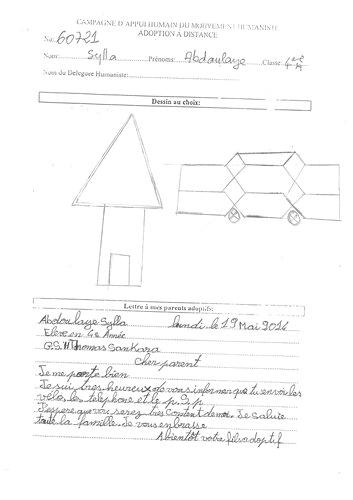 CAMPAGNE D'APPUI HUMAIN DU MOUVEMENT HUMANISTE
ADOPTION À DISTANCE
No: 60721
Nom: Sylla Prénoms: Abdoulaye Classe: 4
Nom du Délégué Humaniste:
Dessin au choix:
Lettre à mes parents adoptifs:
Abdoulaye Sylla lundi le 19 Mai 2014
Eleve en 4e Année
G.S. Thomas Sankara
Cher parent
Je me porte bien
Je sui tres heureux de vous informer que tu envoir les
velos les telephone et le p.S.p
J'espere que vou serez tres content de moi. Je salue
toute la famille. Je vous enbrasse
Abientot votre fils adoptif